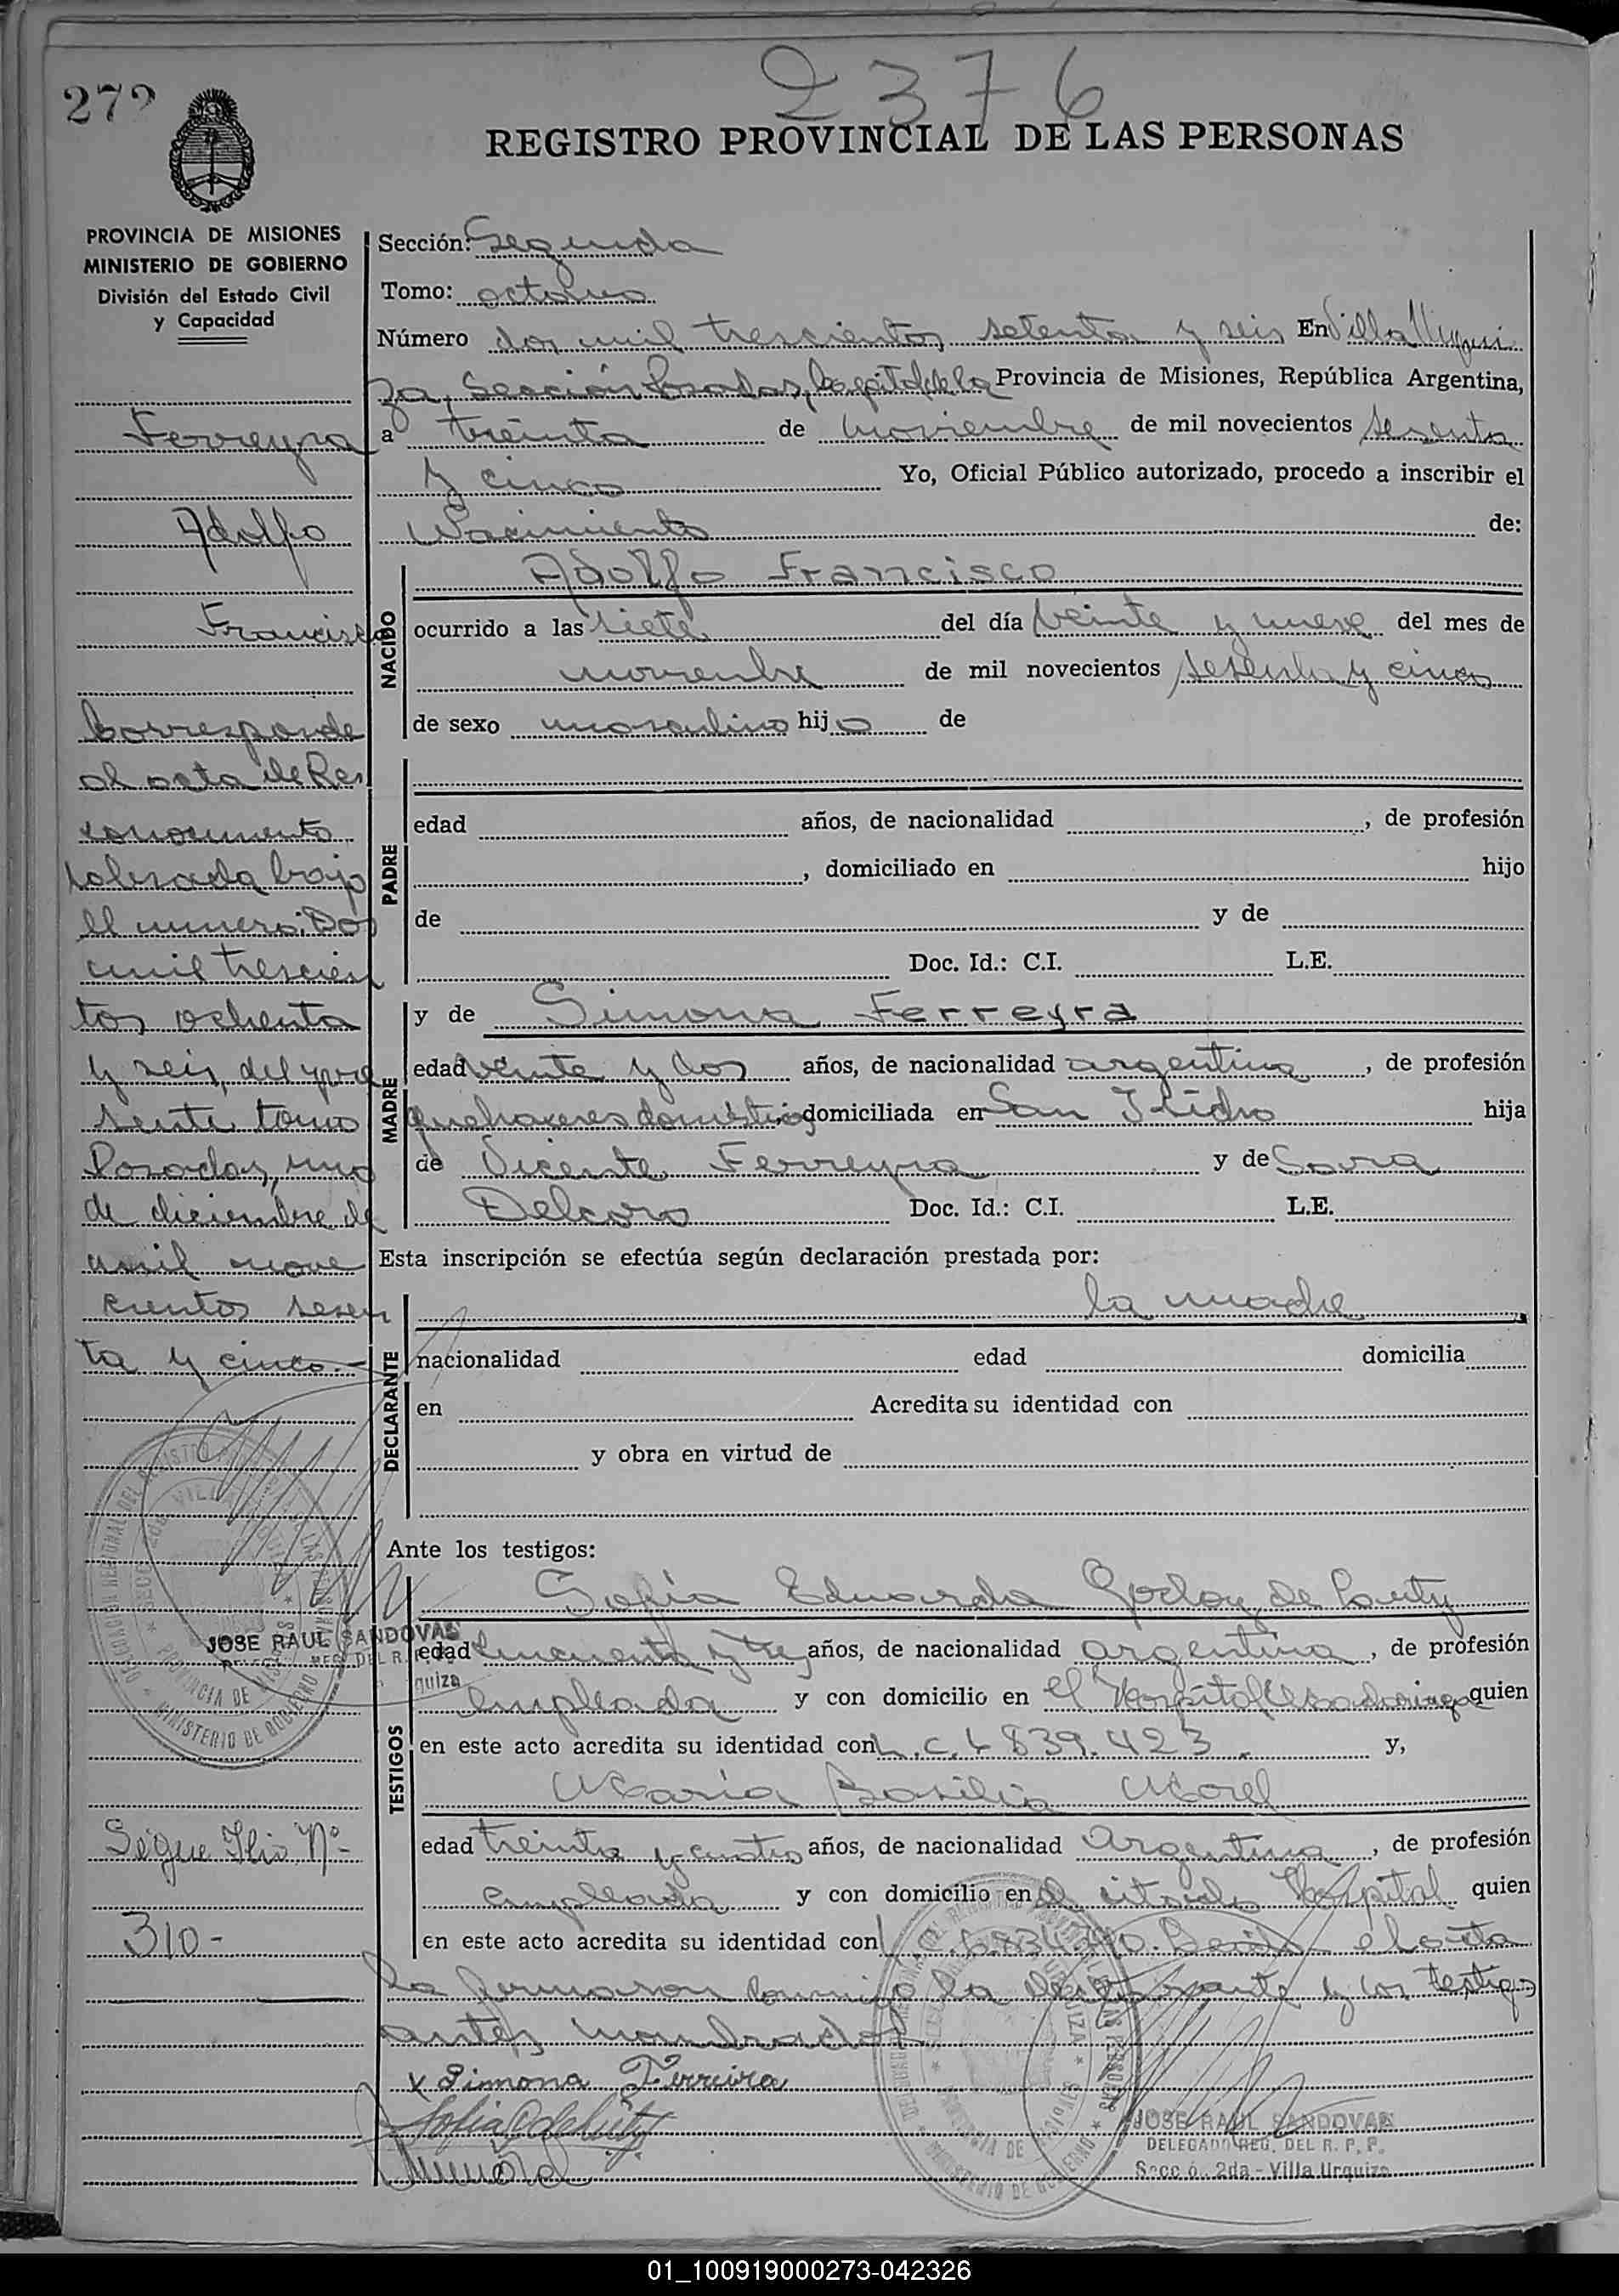 2376
272
REGISTRO PROVINCIAL DE LAS PERSONAS
PROVINCIA DE MISIONES
MINISTERIO DE GOBIERNO
División del Estado Civil
y Capacidad
Ferreyra
Adolfo
Francisco
Corresponde
al acta de Re
conocimento
labrada bajo
el numero: Dos
mil trescien
tos ochenta
y seis, del pre
sente tomo
Posadas, uno
de diciembre de
mil nove
cientos sesen
ta y cinco.-
JOSE RAUL SANDOVAL
Sigue Flio Nº-
310-
Sección: Segunda
Tomo: octavo
Número dos mil trescientos setenta y seis En Villa Urqui
za, Sección Posadas, Capital de la Provincia de Misiones, República Argentina,
a treinta de noviembre de mil novecientos sesenta
y cinco Yo, Oficial Público autorizado, procedo a inscribir el
Nacimiento de:
NACIDO
Adolfo Francisco
ocurrido a las siete del día veinte y nueve del mes de
noviembre de mil novecientos sesenta y cinco
de sexo masculino hijo de
PADRE
edad años, de nacionalidad , de profesión
, domiciliado en hijo
de y de
Doc. Id.: C.I. L.E.
MADRE
y de Simona Ferreyra
edad veinte y dos años, de nacionalidad argentina, de profesión
quehaceres domésticos domiciliada en San Isidro hija
de Vicente Ferreyra y de Sara
Delcoro Doc. Id.: C.I. L.E.
Esta inscripción se efectúa según declaración prestada por:
la madre
DECLARANTE
nacionalidad edad domicilia
en Acredita su identidad con
y obra en virtud de
Ante los testigos:
TESTIGOS
Sofía Eduarda Godoy de
edad cincuenta y tres años, de nacionalidad argentina, de profesión
empleada y con domicilio en el Hospital Madariaga quien
en este acto acredita su identidad con L.C. 4839.423. y,
María Basilia Morel
edad treinta y cuatro años, de nacionalidad argentina, de profesión
empleada y con domicilio en el citado Hospital quien
en este acto acredita su identidad con el acta
la firmaron conmigo la declarante y los testigos
antes nombrados
x Simona Ferreira
JOSE RAUL SANDOVAL
DELEGADO REG. DEL R. P. P.
Secc ó. 2da - Villa Urquiza
01_100919000273-042326